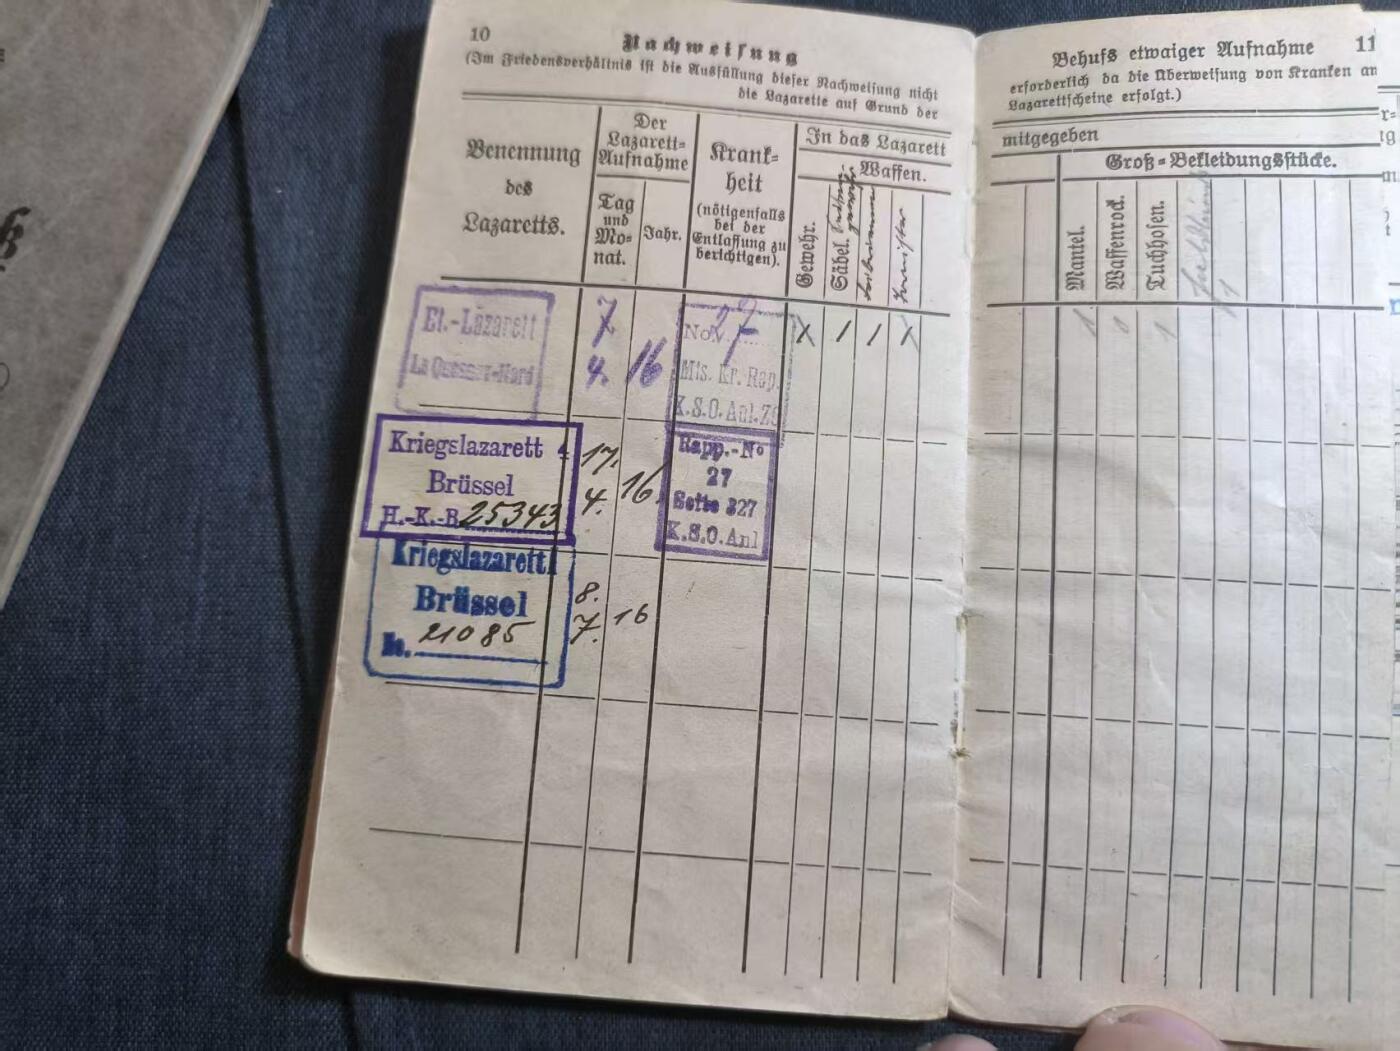 10
Nachweisung
(Im Friedensverhältnis ist die Ausfüllung dieser Nachweisung nicht
die Lazarette auf Grund der
Benennung
des
Lazaretts.
Der
Lazarett-
Aufnahme
Tag
und
Mo-
nat.
Jahr.
Krank-
heit
(nötigenfalls
bei der
Entlassung zu
berichtigen).
In das Lazarett
Waffen.
Gewehr.
Säbel.
Et.-Lazarett
7.
4.
16
Nov.
27
Mts. Kr. Rap.
K.S.O. Anl.
Kriegslazarett 4
Brüssel
H.-K.-B. 25343
17.
4.
16.
Rapp.-No
27
Seite 327
K.S.O. Anl
Kriegslazarett
Brüssel
No. 21085
8.
7.
16
Behufs etwaiger Aufnahme 11
erforderlich da die Überweisung von Kranken an
Lazarettscheine erfolgt.)
mitgegeben
Groß-Bekleidungsstücke.
Mantel.
Waffenrock.
Tuchhosen.
1